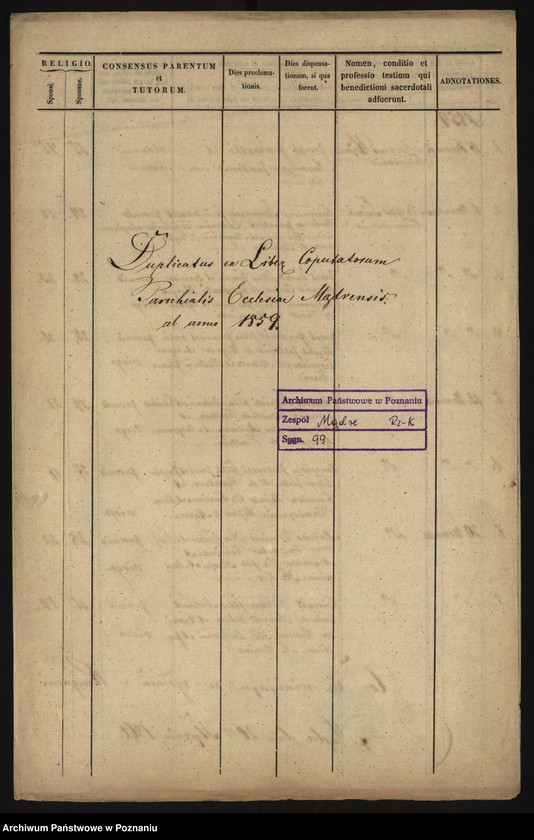 RELIGIO.
Sponsi.
Sponsae.
CONSENSUS PARENTUM
et
TUTORUM.
Dies proclama-
tionis.
Dies dispensa-
tionum, si qua
forent.
Nomen, conditio et
professio testium qui
benedictioni sacerdotali
adfuerunt.
ADNOTATIONES.
Duplicatus ex Liber Copulatorum
Parochialis Ecclesiae Mądrensis.
ab anno 1859.
Archiwum Państwowe w Poznaniu
Zespół Mądre Rz-K
Sygn. 99
Archiwum Państwowe w Poznaniu